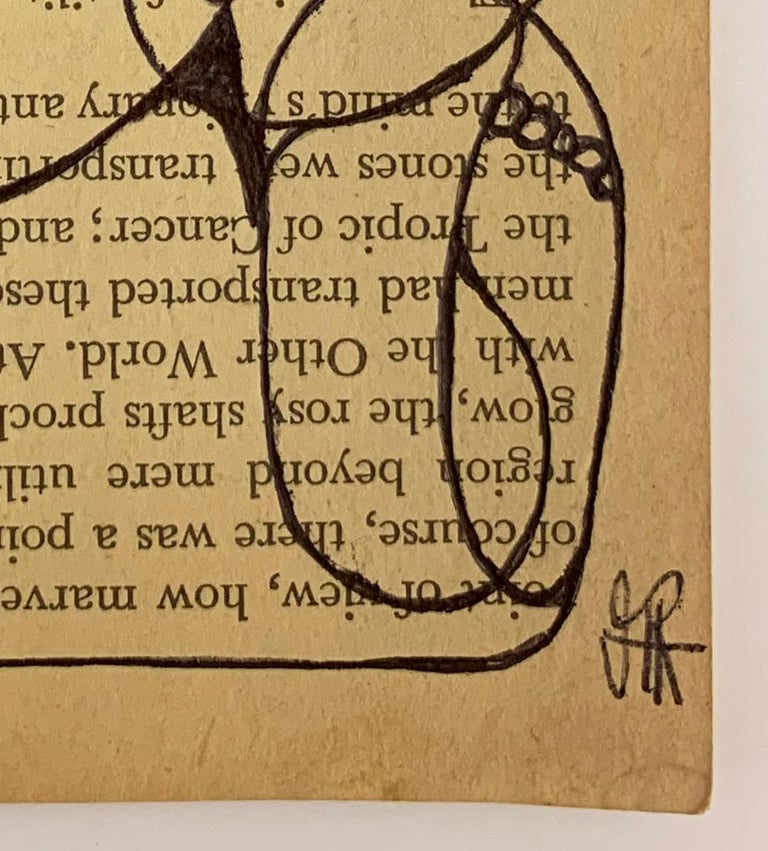 point of view, how marve
of course, there was a poi
region beyond mere util
glow, the rosy shafts procl
with the Other World. At
men had transported these
the Tropic of Cancer; and
the stones were transportin
to the mind's visionary ant